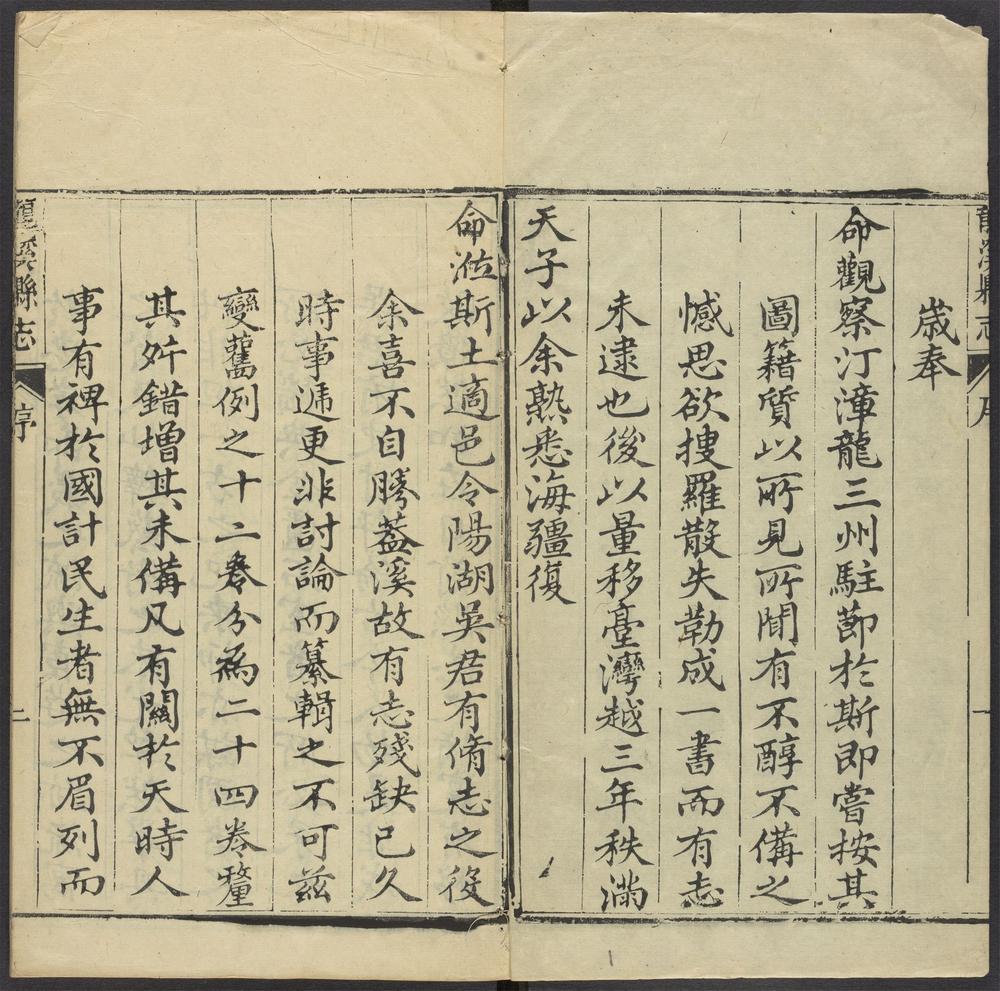 龍溪縣志
序
一
歲奉
命觀察汀漳龍三州駐莭於斯即嘗按其
圖籍質以所見所聞有不醇不備之
憾思欲搜羅散失勒成一書而有志
未逮也後以量移臺灣越三年秩滿
天子以余熟悉海疆復
命涖斯土適邑令陽湖吳君有脩志之役
余喜不自勝葢溪故有志殘缺已久
時事遞更非討論而纂輯之不可兹
變舊例之十二卷分為二十四卷釐
其舛錯增其未備凡有關於天時人
事有裨於國計民生者無不眉列而
龍溪縣志
序
二